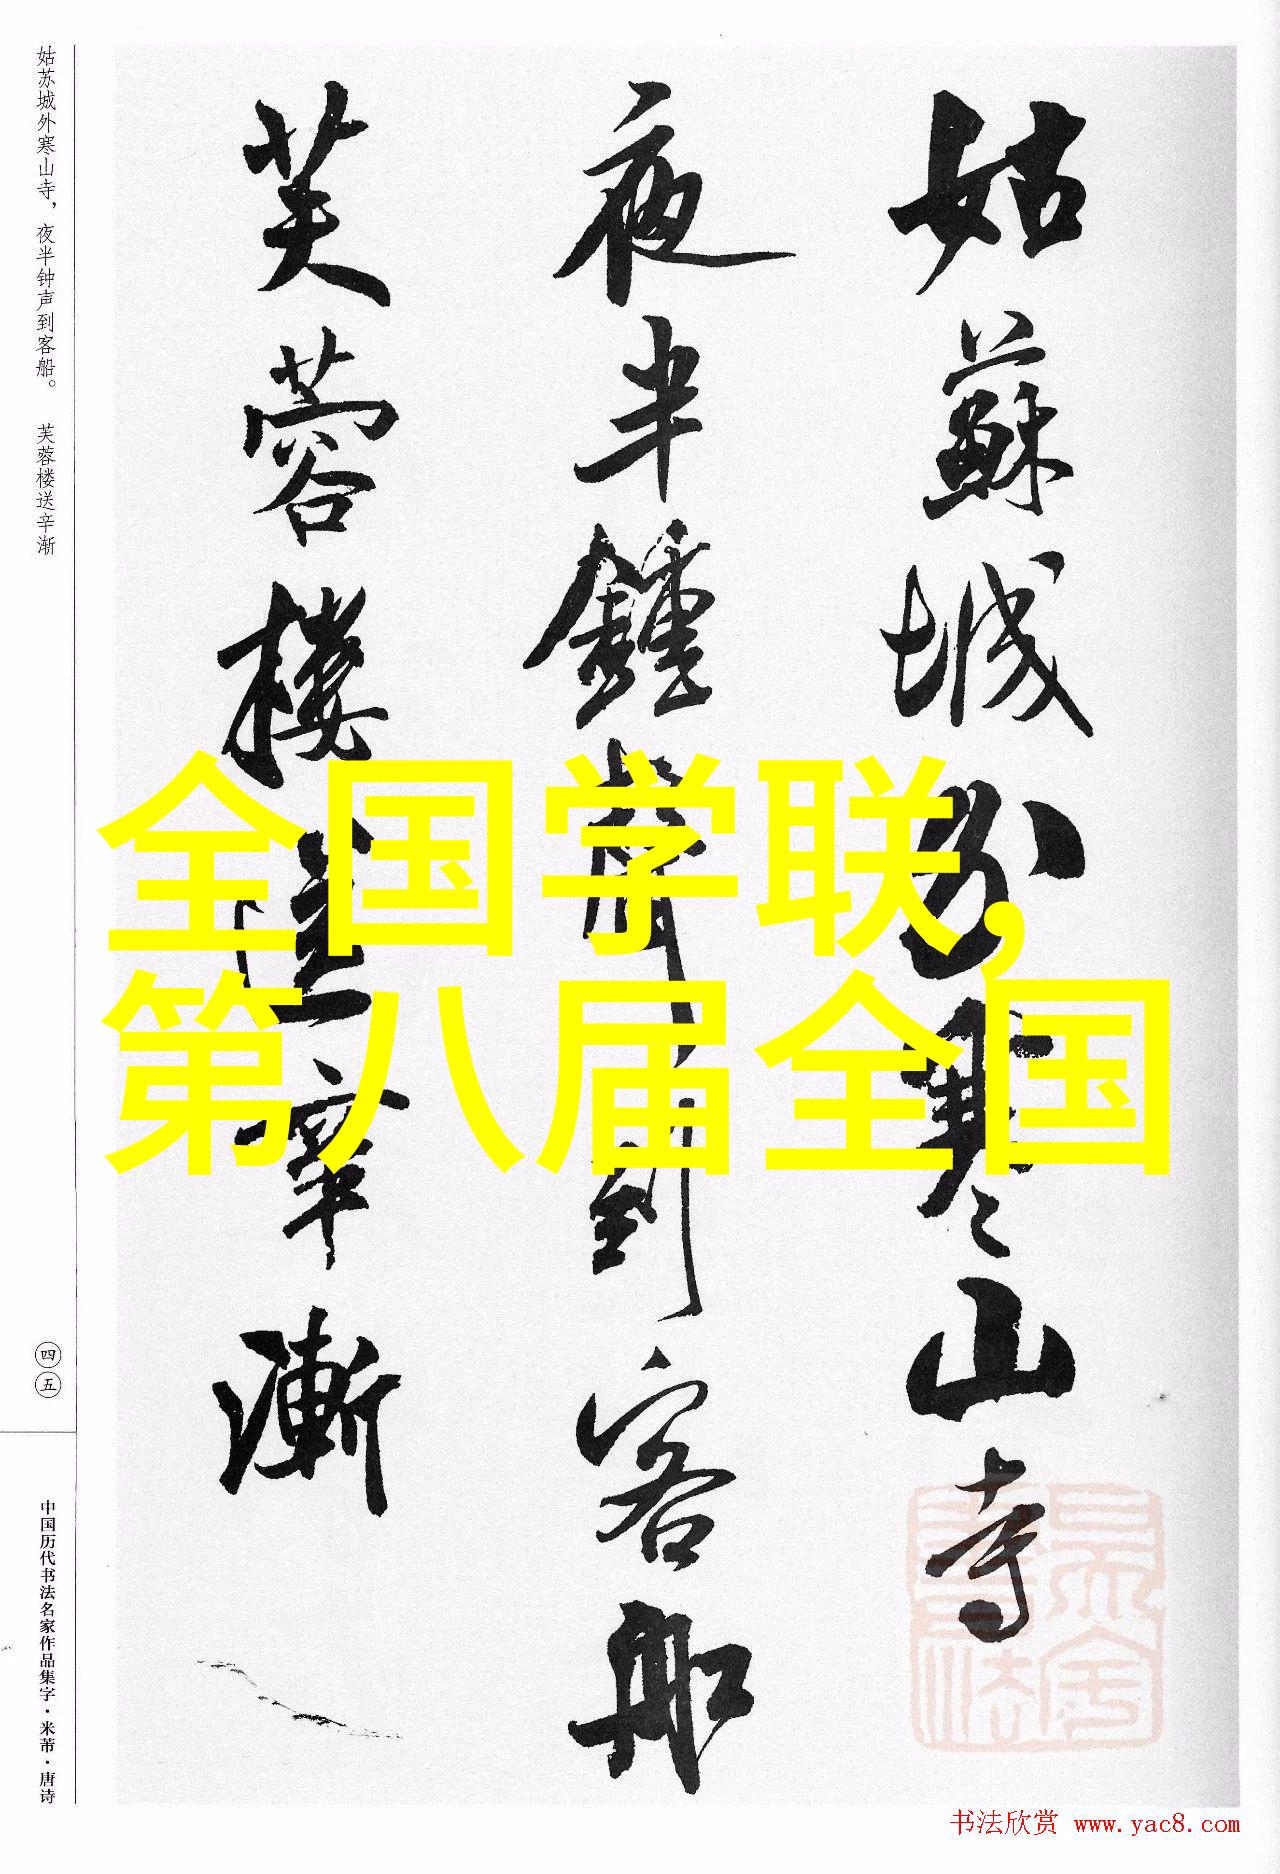 姑蘇城外寒山寺
夜半鍾聲到客船
芙蓉樓送辛漸
姑苏城外寒山寺，夜半钟声到客船。 芙蓉楼送辛渐
四五
中国历代书法名家作品集字·米芾·唐诗
全国学联,
第八届全国
书法欣赏 www.yac8.com